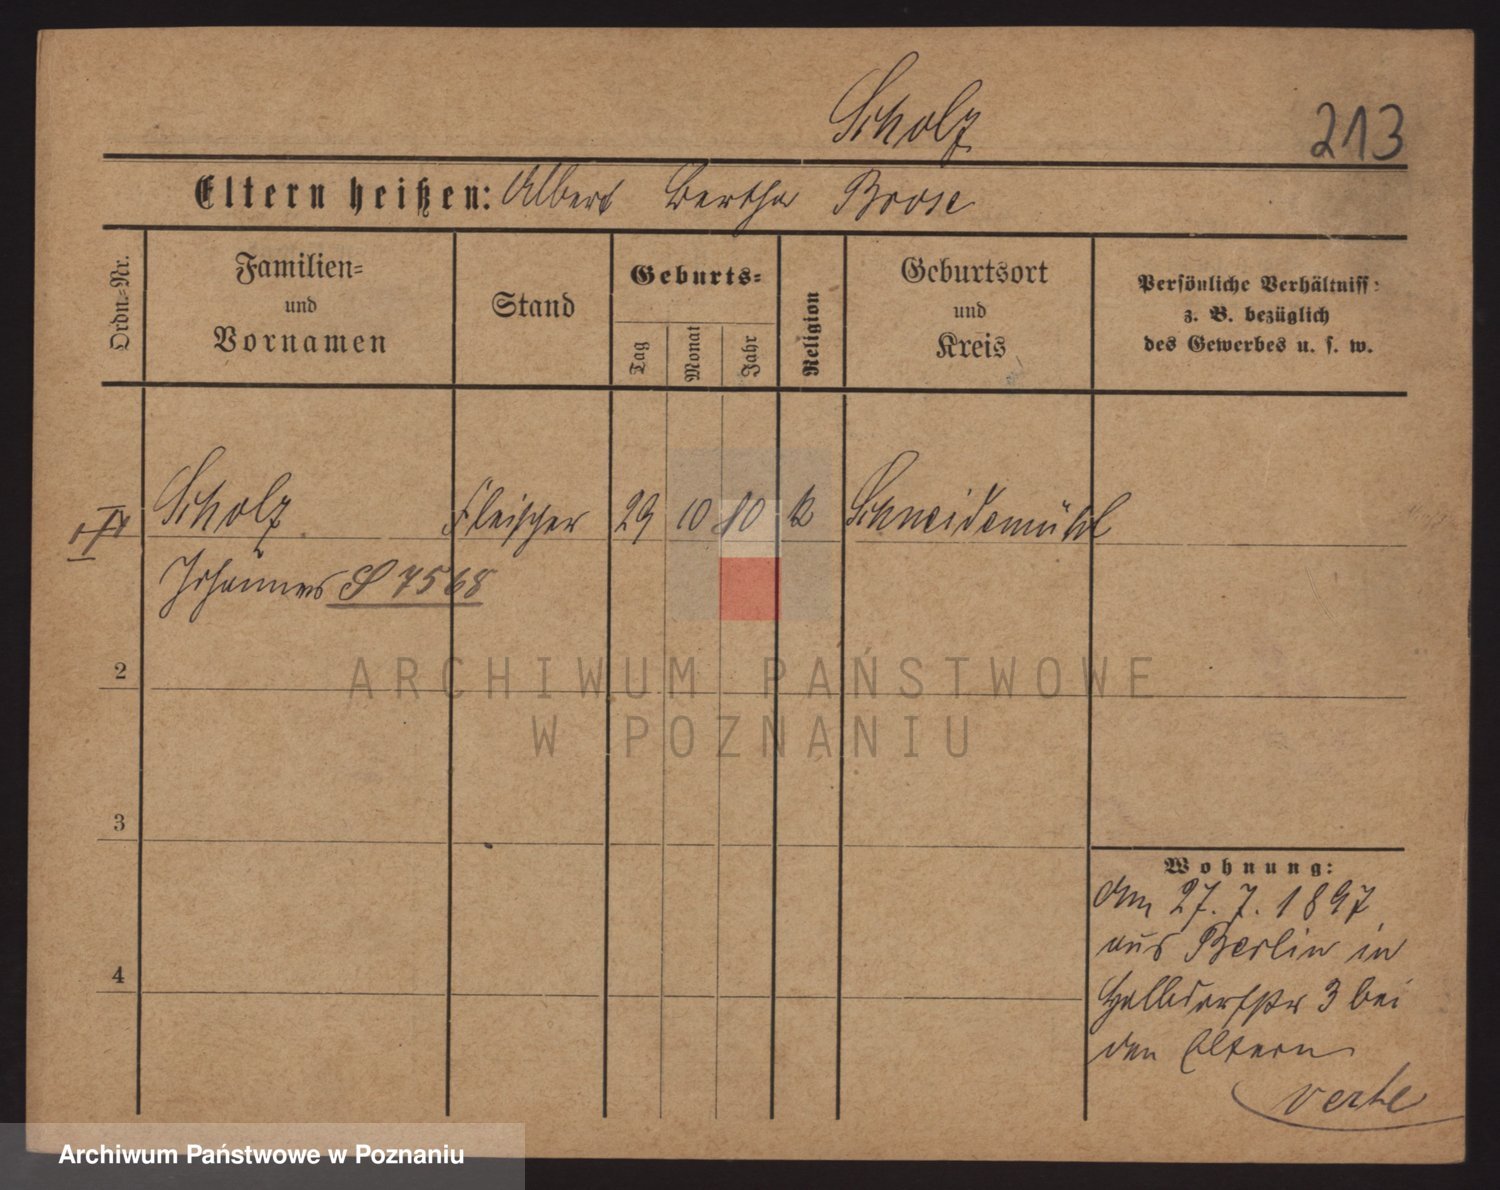 Scholz
213
Eltern heißen: Albert Bertha Brose
Ordn.-Nr.
Familien-
und
Vornamen
Stand
Geburts-
Tag
Monat
Jahr
Religion
Geburtsort
und
Kreis
Persönliche Verhältniss:
z. B. bezüglich
des Gewerbes u. s. w.
Scholz Fleischer 29 10 80 k Schneidemühl
Johannes S 7568
2
3
4
Wohnung:
Am 27. 7. 1897
aus Berlin in
Halbdorfstr 3 bei
den Eltern
verte
ARCHIWUM PAŃSTWOWE
W POZNANIU
Archiwum Państwowe w Poznaniu